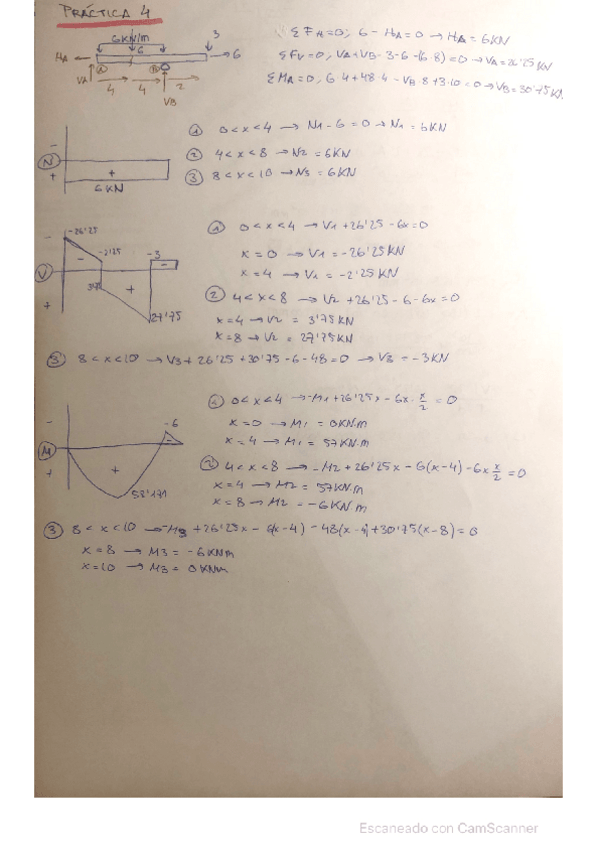 PRÁCTICA 4
6KN/m
6
3
HA
6
VA
A
B
4 4 2
VB
ΣFH=0; 6 - HA=0 → HA = 6KN
ΣFV=0; VA+VB-3-6-(6·8)=0 → VA=26'25 KN
ΣMA=0; 6·4+48·4-VB·8+3·10=0 → VB=30'75 KN
N
-
+
+
6KN
① 0<x<4 → N1-6=0 → N1=6KN
② 4<x<8 → N2=6KN
③ 8<x<10 → N3=6KN
V
-
+
-26'25
-
-2'25
+
27'75
-3
-
① 0<x<4 → V1+26'25-6x=0
x=0 → V1=-26'25KN
x=4 → V1=-2'25KN
② 4<x<8 → V2+26'25-6-6x=0
x=4 → V2=3'75KN
x=8 → V2=27'75KN
③ 8<x<10 → V3+26'25+30'75-6-48=0 → V3=-3KN
M
-
+
+
58'171
-6
-
① 0<x<4 → -M1+26'25x-6x·x/2=0
x=0 → M1=0KN·m
x=4 → M1=57KN·m
② 4<x<8 → -M2+26'25x-6(x-4)-6x x/2=0
x=4 → M2=57KN·m
x=8 → M2=-6KN·m
③ 8<x<10 → -M3+26'25x-6(x-4)-48(x-4)+30'75(x-8)=0
x=8 → M3=-6KNm
x=10 → M3=0KNm
Escaneado con CamScanner